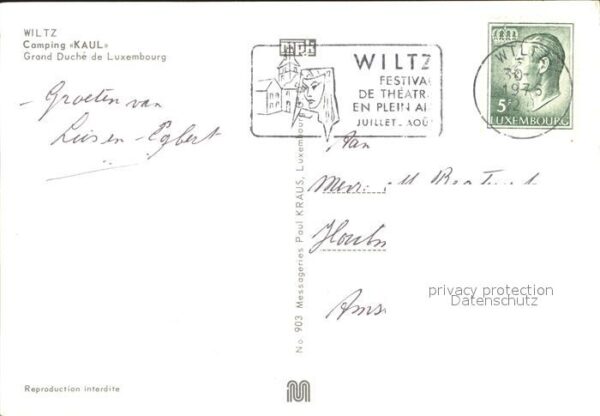 WILTZ
Camping «KAUL»
Grand Duché de Luxembourg
Groeten van
Luis en Egbert
WILTZ
FESTIVAL
DE THÉATR
EN PLEIN AI
JUILLET-AOÛ
WILTZ
30-
1976
5F
LUXEMBOURG
Aan
Mevr.
Ams
privacy protection
Datenschutz
No 903 Messageries Paul KRAUS, Luxembourg
Reproduction interdite
M